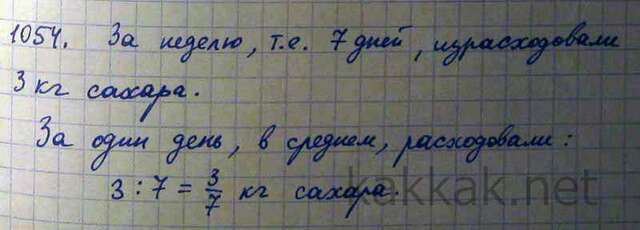 1054. За неделю, т.е. 7 дней, израсходовали
3 кг сахара.
За один день, в среднем, расходовали:
3 : 7 = 3/7 кг сахара.
kakkak.net